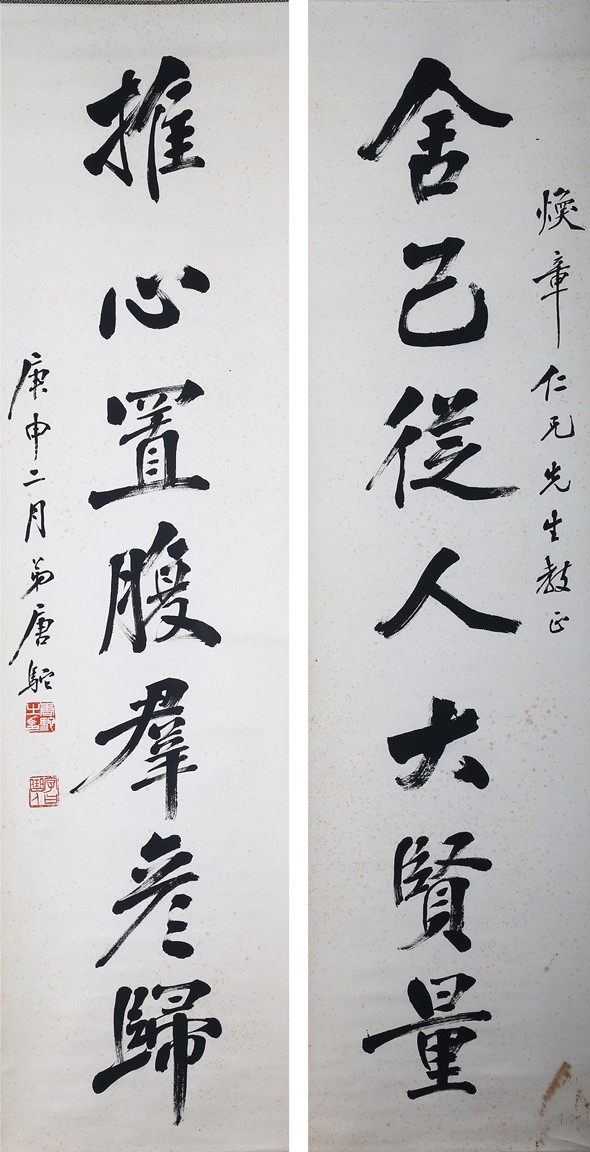 煥章仁兄先生教正
舍己從人大賢量
推心置腹羣彦歸
庚申二月弟唐駝